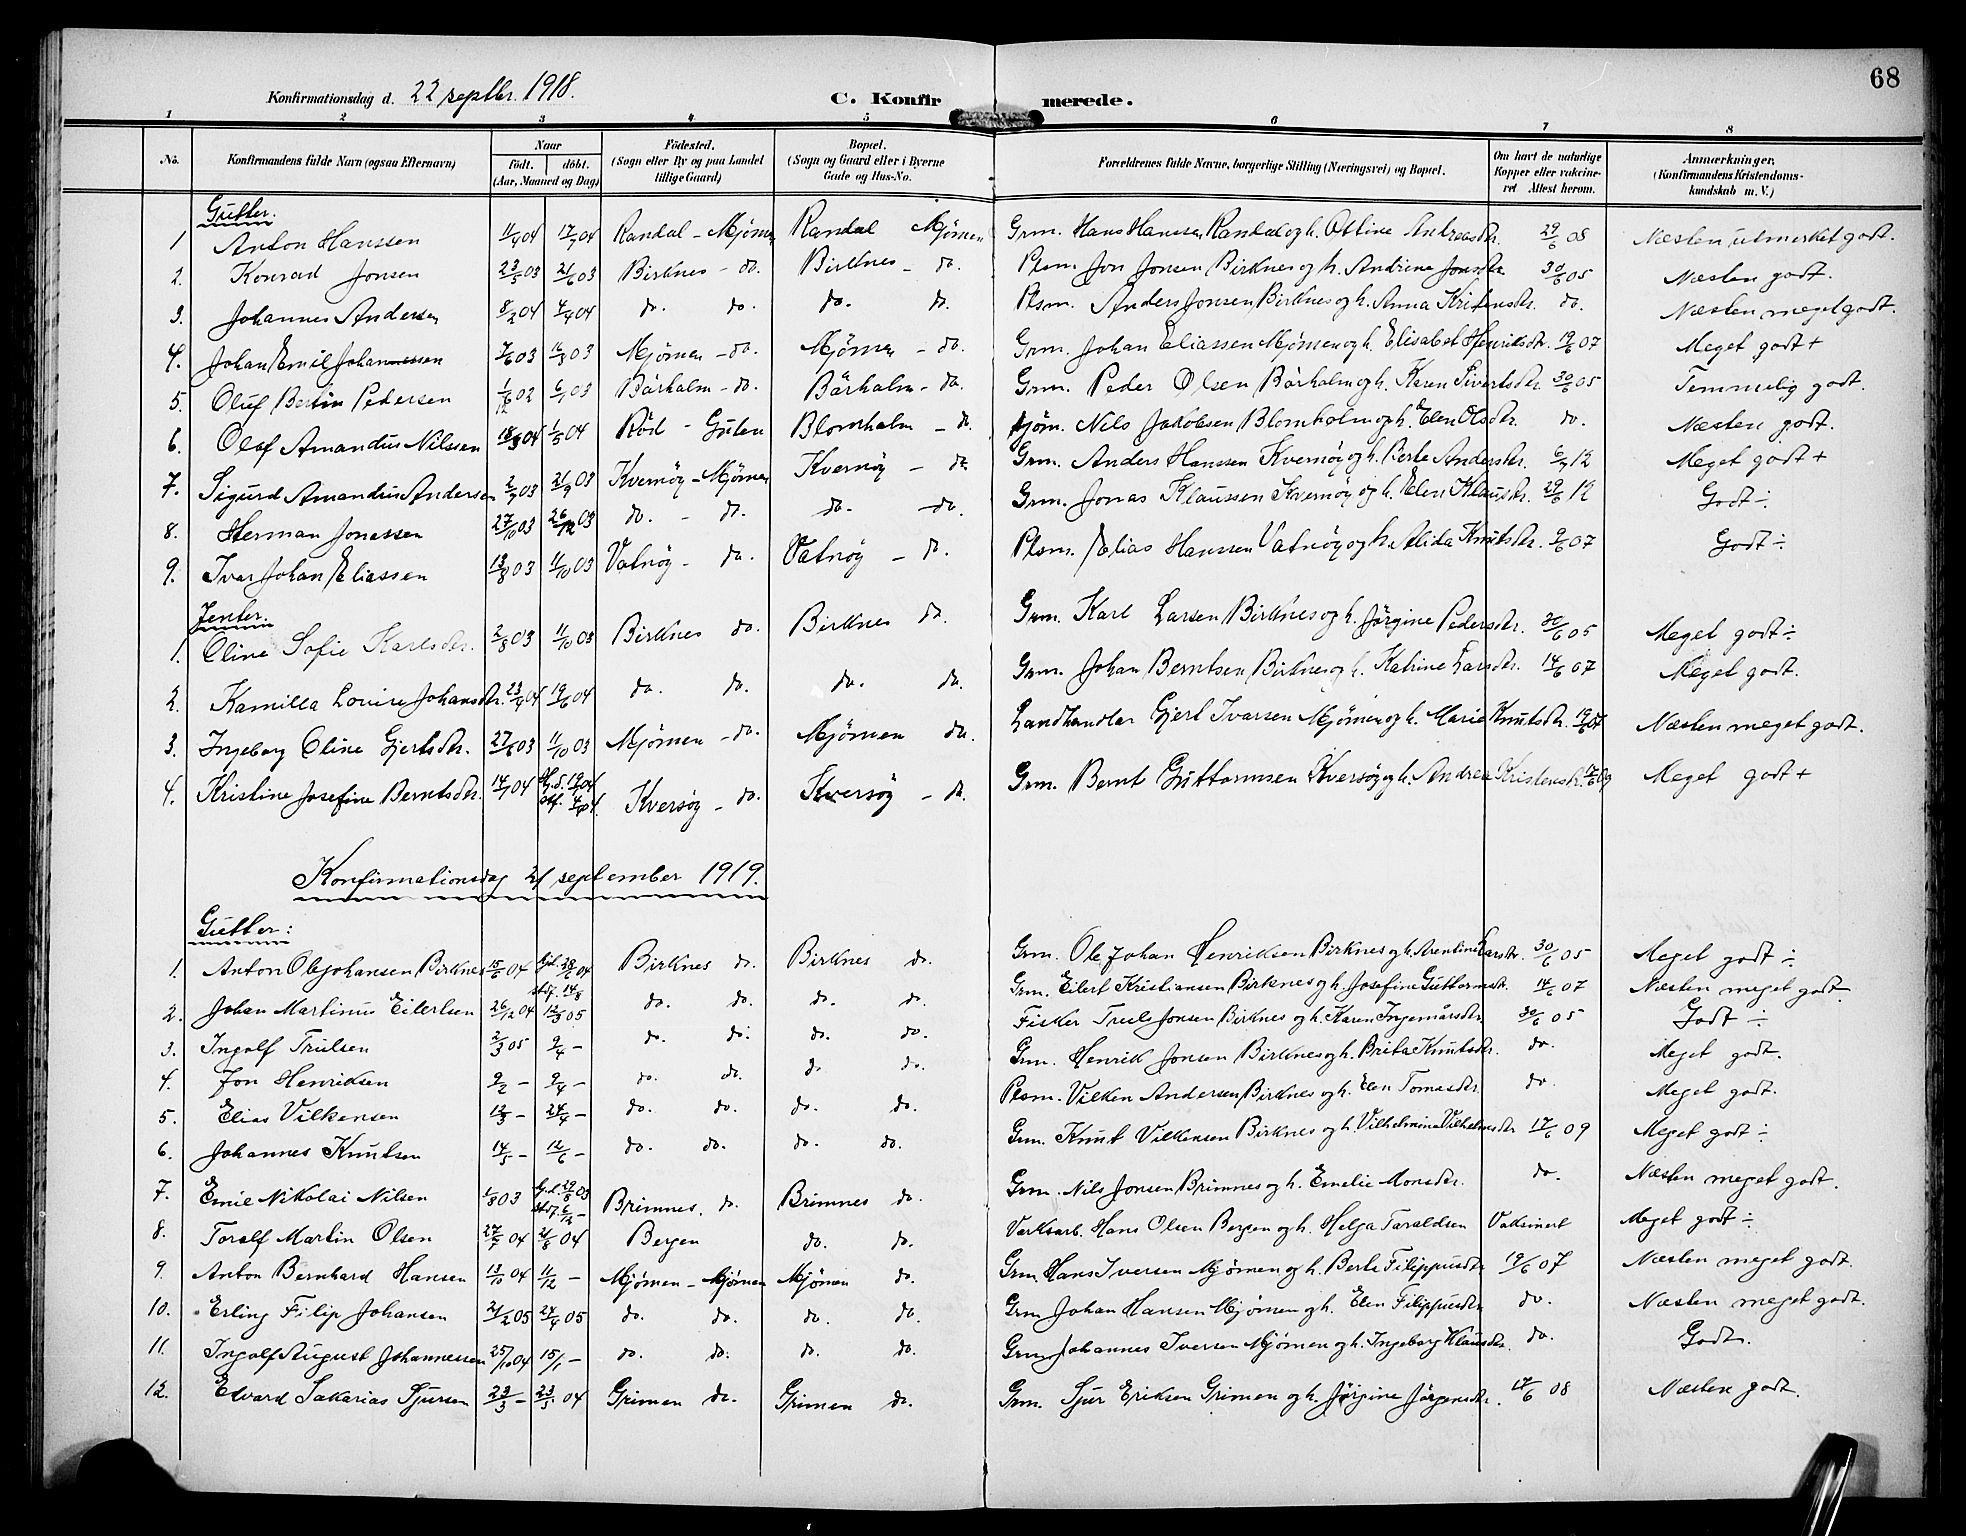 68
Konfirmationsdag d. 22 septbr. 1918.
C. Konfirmerede.
1 2 3 4 5 6 7 8
No. Konfirmandens fulde Navn (ogsaa Efternavn) Naar födt. döbt. (Aar, Maaned og Dag) Födested. (Sogn eller By og paa Landet tillige Gaard) Bopæl. (Sogn og Gaard eller i Byerne Gade og Hus-No. Forældrenes fulde Navne, borgerlige Stilling (Næringsvei) og Bopæl. Om havt de naturlige Kopper eller vakcineret Attest herom. Anmærkninger. (Konfirmandens Kristendomskundskab m. V.)
Gutter.
1 Anton Hanssen 11/4 04 17/7 04 Randal - Mjömen Randal Mjömen Grm. Hans Hanssen Randal og h. Ottine Andreasdr. 29/6 08 Næsten utmerket godt.
2. Konrad Jonsen 23/5 03 21/6 03 Birknes - do. Birknes - do. Plsm. Jon Jonsen Birknes og h. Andrine Jonsdr. 30/6 05 Næsten godt.
3. Johannes Andersen 8/2 04 4/4 04 do. do. do. do. Plsm. Anders Jonsen Birknes og h. Anna Kristensdr. do. Næsten meget godt.
4. Johan Emil Johannessen 7/6 03 16/8 03 Mjömen - do. Mjömen - do. Grm. Johan Eliassen Mjömen og h. Elisabet Henriksdr. 19/6 07 Meget godt +
5. Oluf Bertin Pedersen 1/12 02 6/1 03 Bårholm - do. Bårholm - do. Grm. Peder Olsen Bårholm og h. Karen Sivertsdr. 30/6 05 Temmelig godt.
6. Olaf Amandus Nilssen 18/3 04 1/5 04 Röd - Gulen Blomholm - do. Nils Jakobsen Blomholm og h. Elen Olsdr. do. Næsten godt.
7. Sigurd Amandus Andersen 2/7 03 21/9 03 Kvernöy - Mjömen Kvernöy - do Grm. Anders Hanssen Kvernöy og h. Berte Andersdr. 6/7 12 Meget godt +
8. Herman Jonassen 27/10 03 26/12 03 do. - do. do. - do. Grm. Jonas Klaussen Kvernöy og h. Elen Klausdr. 29/6 12 Godt ÷
9. Ivar Johan Eliassen 13/8 03 11/10 03 Vatnöy - do. Vatnöy - do. Plsm. Elias Hanssen Vatnöy og h. Alida Knutsdr. 9/6 07 Godt ÷
Jenter.
1. Oline Sofie Karlsdr. 2/8 03 11/10 03 Birknes do. Birknes do. Grm. Karl Larsen Birknes og h. Jörgine Pedersdr. 30/6 05 Meget godt ÷
2. Kamilla Lovise Johansdr. 23/4 04 19/6 04 do. do. do. do. Grm. Johan Berntsen Birknes og h. Katrine Larsdr. 14/6 07 Meget godt.
3. Ingeborg Oline Gjertsdr. 27/6 03 11/10 03 Mjömen - do. Mjömen do. Landhandler Gjert Ivarsen Mjömen og h. Marie Knutsdr. 19/6 07 Næsten meget godt.
4. Kristine Josefine Berntsdr. 14/1 04 Kversöy - do. Kversöy - do. Grm. Bernt Guttormsen Kversöy og h. Andrea Kristensdr. 17/6 09 Meget godt +
Konfirmationsdag 21 september 1919.
Gutter:
1. Anton Olejohansen Birknes 15/6 04 Hjd. 28/6 04 stdf. 14/8 Birknes do. Birknes do. Grm. Ole Johan Henriksen Birknes og h. Arentine Larsdr. 30/6 05 Meget godt ÷
2. Johan Martinus Eilertsen 26/12 04 12/3 05 do. do. do. do. Grm. Eilert Kristiansen Birknes og h. Josefine Guttormsdr. 14/6 07 Næsten meget godt
3. Ingolf Trulsen 2/3 05 9/4 - do. do. do. do. Fisker Truls Jonsen Birknes og h. Karen Ingemårsdr. 30/6 05 Godt ÷
4. Jon Henriksen 9/2 - 9/4 - do. do. do do. Grm. Henrik Jonsen Birknes og h. Brita Knutsdr. do. Meget godt.
5. Elias Vilkensen 13/3 - 24/4 - do. do. do. do. Plsm. Vilken Andersen Birknes og h. Elen Tomasdr. do Meget godt.
6. Johannes Knutsen 14/5 - 12/6 - do. do. do. do. Grm. Knut Vilkensen Birknes og h. Vilhelmina Vilhelmsdr 17/6 09 Meget godt ÷
7. Emil Nikolai Nilsen 1/8 03 Hjd. 29/8 03 stdf. 6/12 - Brimnes, do. Brimnes do. Grm. Nils Jonsen Brimnes og h. Emelie Monsdr. do. Næsten meget godt.
8. Toralf Martin Olsen 27/7 04 21/8 04 Bergen do. do. Verksarb. Hans Olsen Bergen og h. Helga Taraldsen Vaksinert Meget godt ÷
9. Anton Bernhard Hansen 13/10 04 11/12 - Mjömen - Mjömen Mjömen do. Grm Hans Iversen Mjömen og h. Berte Filippusdr 19/6 07 Næsten meget godt.
10. Erling Filip Johansen 21/2 05 24/4 05 do. do. do. do. Grm Johan Hansen Mjömen og h. Elen Filippusdr do. Næsten meget godt.
11. Ingolf August Johannessen 25/10 04 15/1 - do. do. do. do. Grm Johannes Iversen Mjömen og h. Ingeborg Klausdr. do. Godt.
12. Edvard Sakarias Sjursen 23/3 - 23/5 04 Grimen do. Grimen do. Grm. Sjur Eriksen Grimen og h. Jörgine Jörgensdr. 17/6 08 Næsten godt.